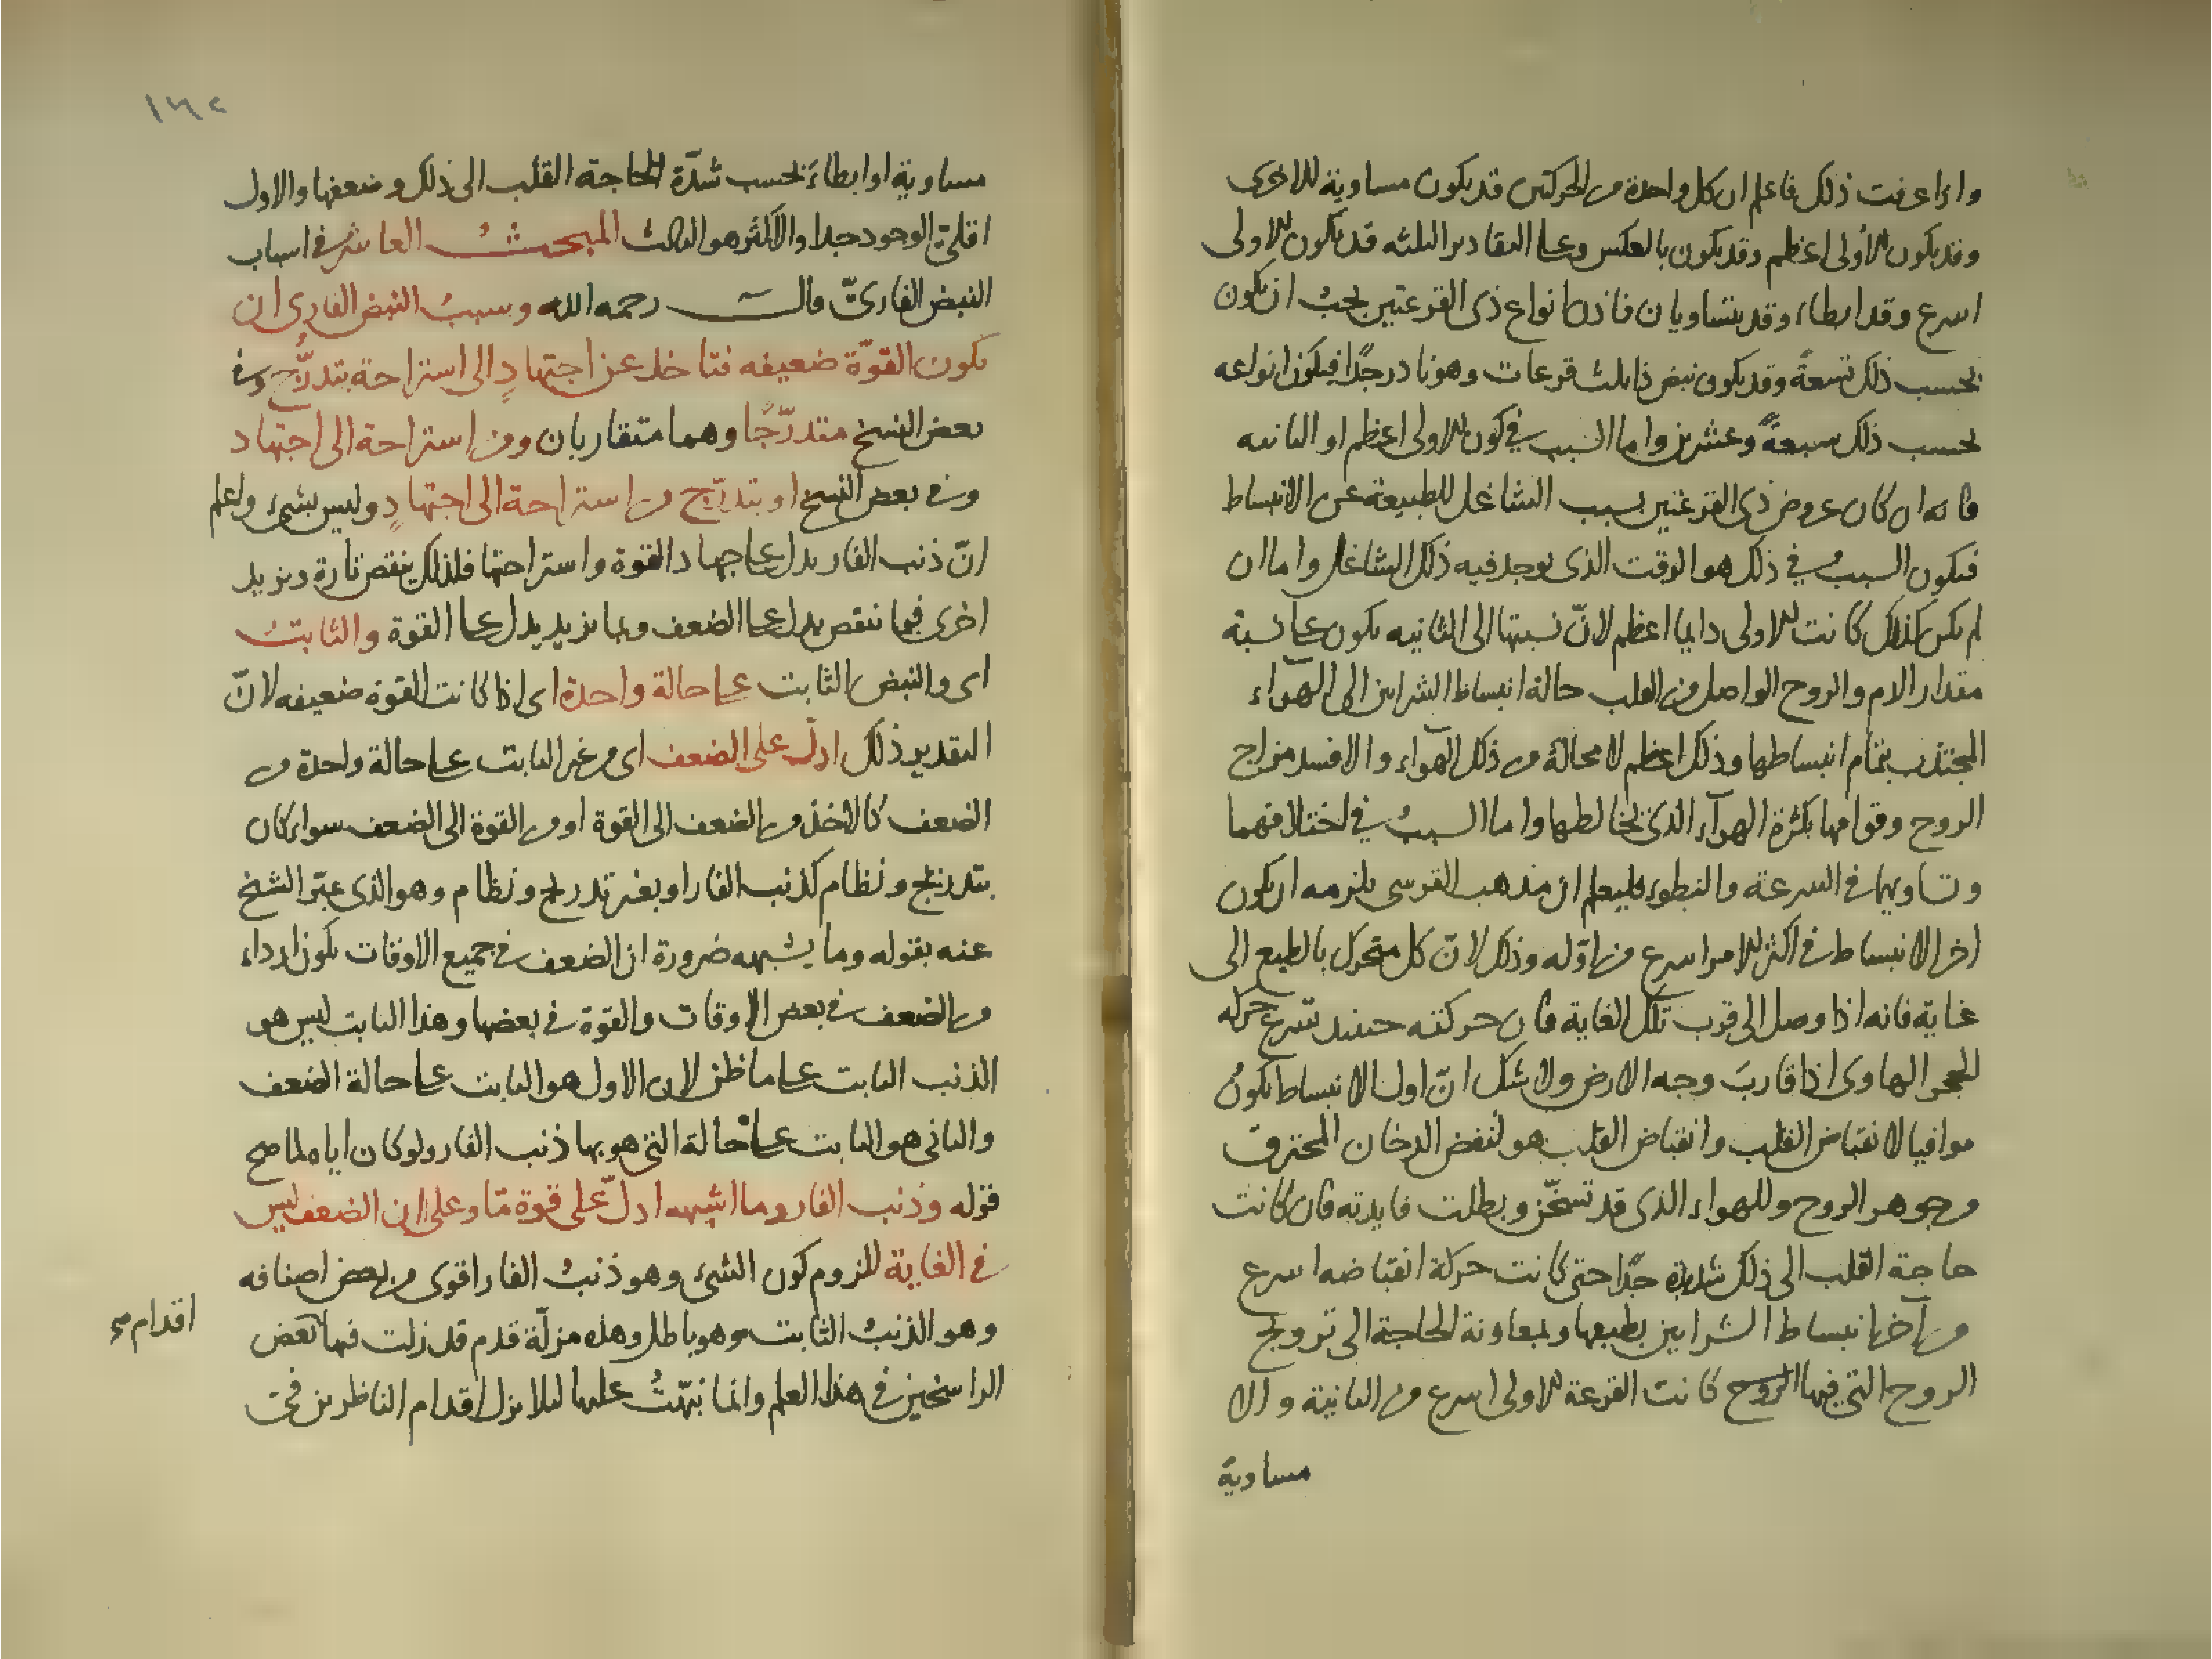 واذا عرفت ذلك فاعلم ان كل واحدة من الحركتين قد يكون مساوية للاخرى
وقد يكون الاولى اعظم وقد يكون بالعكس وعلى التقادير الثلثه قد يكون الاولى
اسرع وقد ابطاء وقد يتساويان فاذن انواع ذى القرعتين يجب ان يكون
بحسب ذلك تسعةً وقد يكون نبض ذا ثلث قرعات وهو نادر جدًا فيكون انواعه
بحسب ذلك سبعةً وعشرين واما السبب في كون الاولى اعظم او الثانيه
فانه ان كان عروض ذى القرعتين بسبب الشاغل للطبيعة عن الانبساط
فيكون السببُ في ذلك هو الوقت الذى يوجد فيه ذلك الشاغل واما ان
لم يكن كذلك كانت الاولى دايما اعظم لانّ نسبتها الى الثانيه يكون على نسبة
مقدار الدم والروح الواصل من القلب حالة انبساط الشرايين الى الهوآء
المجتذب بتمام انبساطها وذلك اعظم لا محالة من ذلك الهوآء والا فسد مزاج
الروح وقوامها بكثرة الهوآء الذى يخالطها واما السببُ في اختلافهما
وتساويهما في السرعة والبطوء فليعلم ان مذهب القرسى يلزمه ان يكون
اخر الانبساط في اكثر الامر اسرع من اوّله وذلك لانّ كل متحرك بالطبع الى
غاية فانه اذا وصل الى قرب تلك الغاية فان حركته حينئد تسرع حركه
للحجر الهاوى اذا قاربَ وجه الارض ولا شك انّ اول الانبساط يكونُ
موافيا لانقباض القلب وانقباض القلب هو لنفض الدخان المحترق
من جوهر الروح وللهواء الذى قد تسخّن وبطلت فايدته فان كانت
حاجة القلب الى ذلك شديدة جدًا حتى كانت حركة انقباضه اسرع
من آخر انبساط الشرايين بطبعها وبمعاونة الحاجة الى ترويح
الروح التي فيها الروح كانت القرعة الاولى اسرع من الثانية والا
مساوية
١٦٢
مساوية او ابطاء بحسب شدّة الحاجة القلب الى ذلك وضعفها والاول
اقلىّ الوجود جدا والاكثر هو الثالث المبحثُ العاشر في اسباب
النبض الفارىّ قال رحمه الله وسببُ النبض الفارى ان
يكون القوّة ضعيفه فتاخذ عن اجتهادٍ الى استراحة بتدرُّج وفي
بعض النسخ متدرّجًا وهما متقاربان ومن استراحة الى اجتهاد
وفي بعض النسخ او بتدرّج من استراحة الى اجتهادٍ وليس بشىء واعلم
انّ ذنب الفار يدل على اجهاد القوة واستراحتها فلذلك ينقص تارة ويزيد
اخرى فبما ينقص يدل على الضعف وبما يزيد يدل على القوة والثابتُ
اى والنبض الثابت على حالة واحدة اى اذا كانت القوة ضعيفه لانّ
التقدير ذلك ادلّ على الضعف اى من غير الثابت على حالة واحدة من
الضعف كالاخذ من الضعف الى القوة او من القوة الى الضعف سواء كان
بتدريج ونظام كذنب الفار او بغير تدريج ونظام وهو الذى عبّر الشيخ
عنه بقوله وما يشبهه ضرورة ان الضعف في جميع الاوقات يكون ارداء
من الضعف في بعض الاوقات والقوة في بعضها وهذا الثابت ليس هو
الذنب الثابت على ما ظن لان الاول هو الثابت على حالة الضعف
والثانى هو الثابت على حالة التى هو بها ذنب الفار ولو كان اياه لما صح
قوله وذنب الفار وما اشبهه ادلّ على قوة مّا وعلى ان الضعف ليس
في الغاية للزوم كون الشىء وهو ذنبُ الفار اقوى من بعض اصنافه
وهو الذنبُ الثابت وهو باطل وهذه مزلّة قدم قد زلت فيها بعض
اقدام صح
الراسخين في هذا العلم وانما نبّهتُ عليها ليلا يزل اقدام الناظرين في